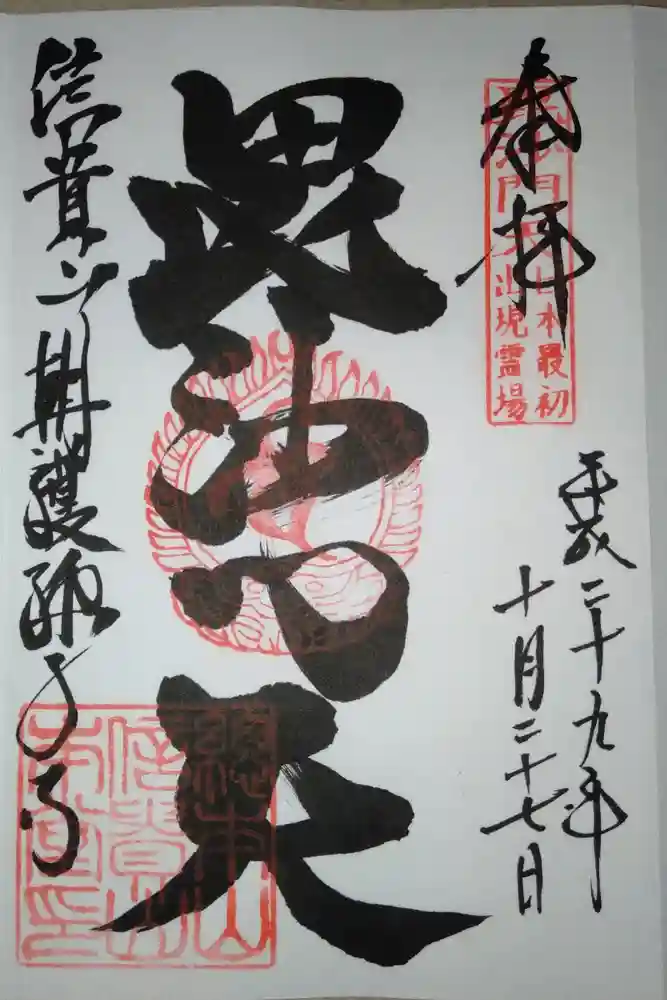 奉拝
毘沙門天出現霊場
日本最初
平成二十九年
十月二十七日
毘沙門天
信貴山朝護孫子寺
總本山
信貴山
本堂印